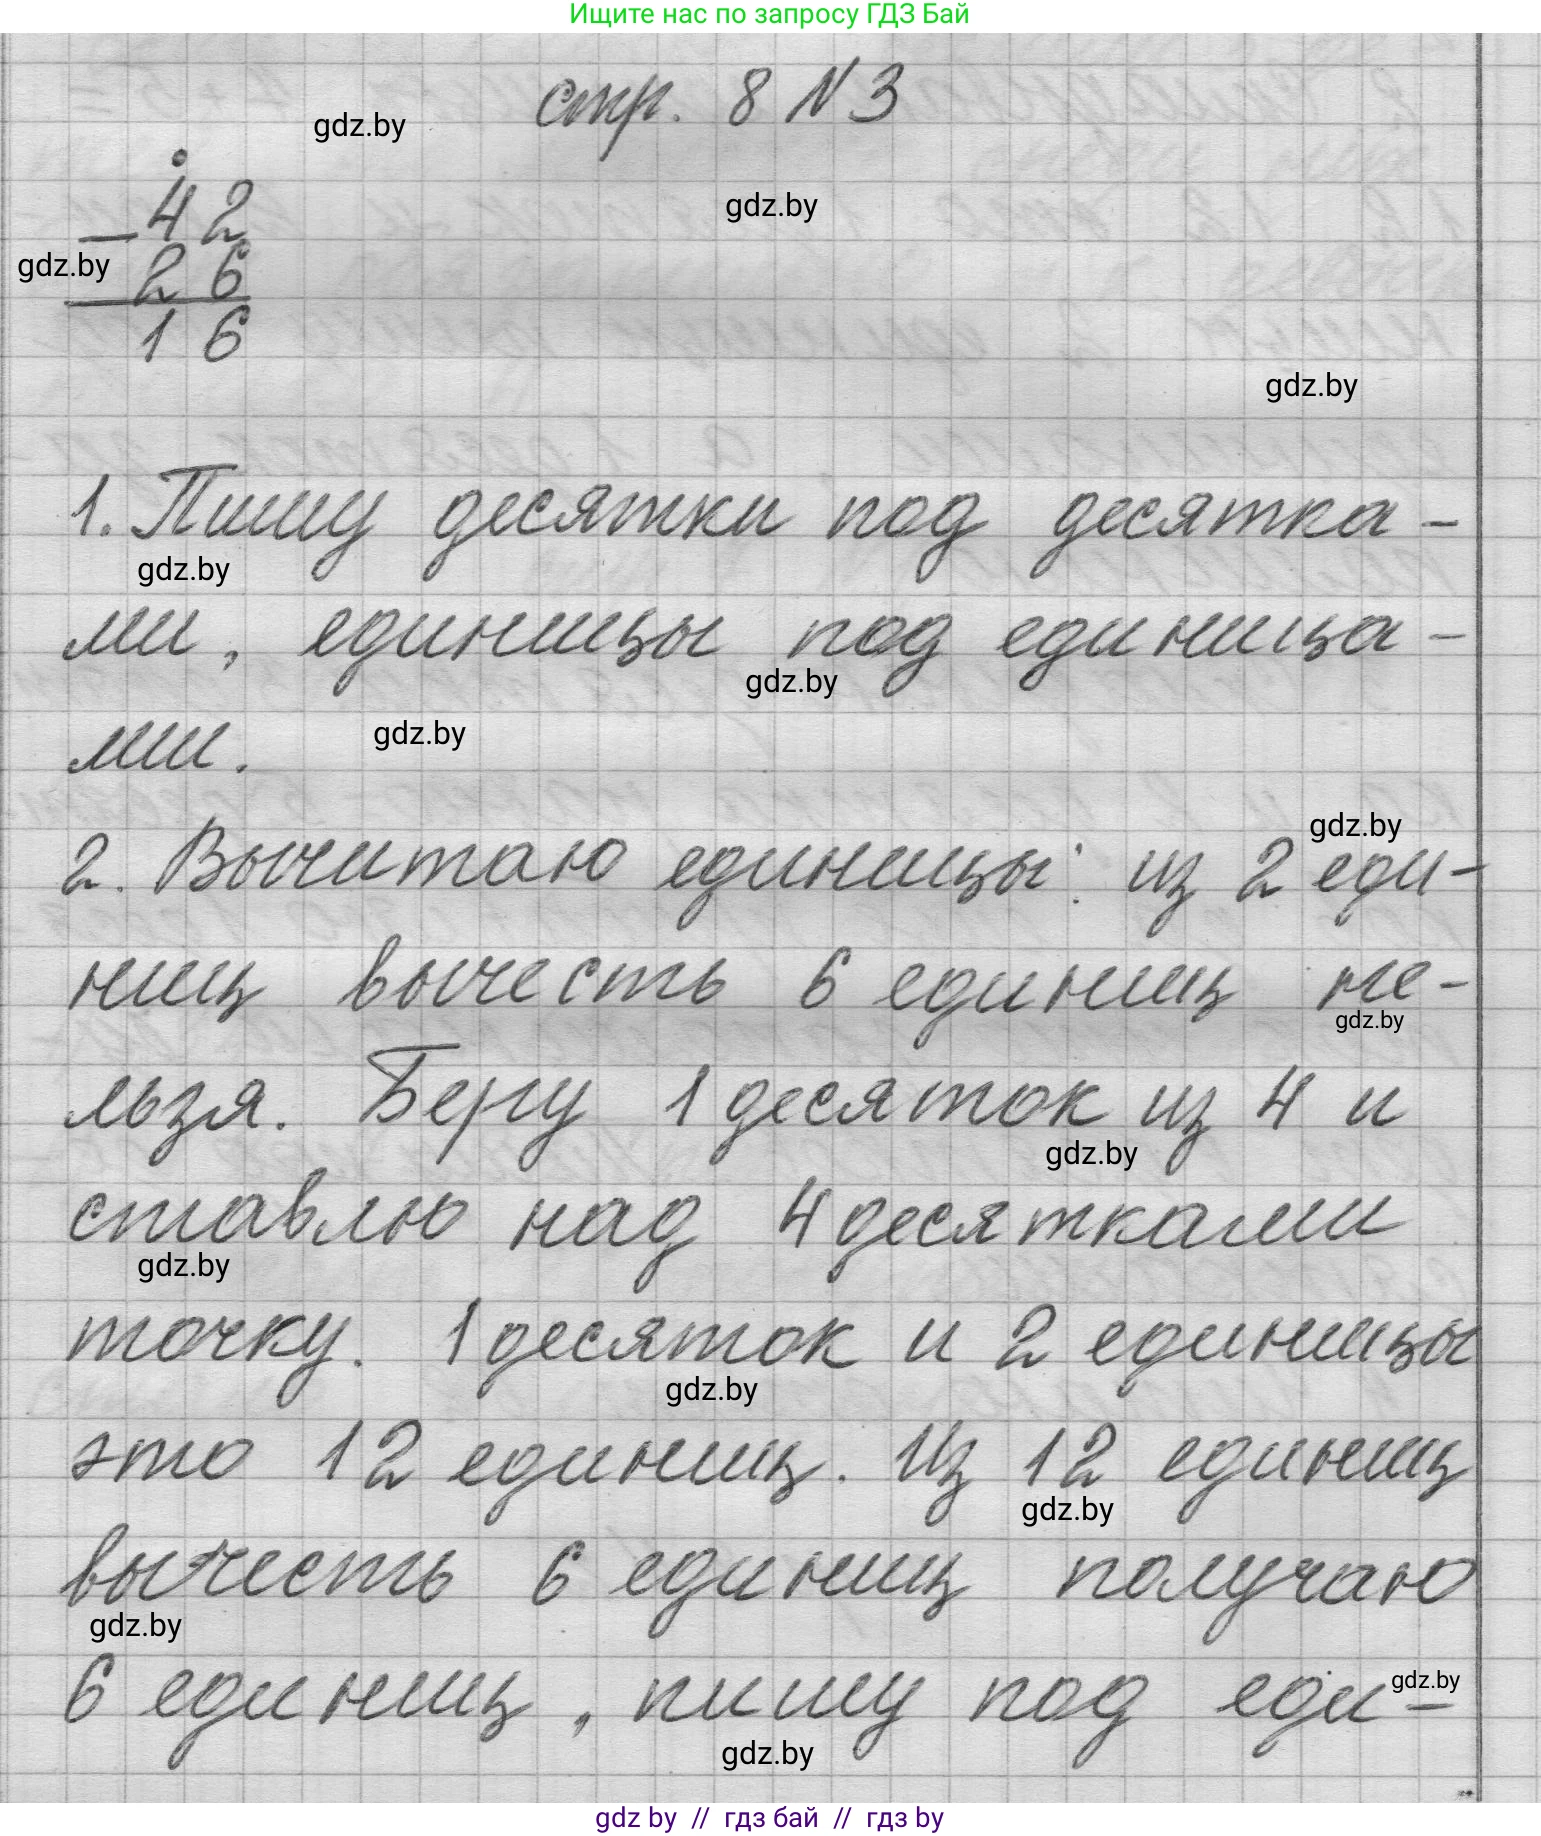 Ищите нас по запросу ГДЗ Бай
стр. 8 №3
gdz.by
42
gdz.by
gdz.by
26
16
gdz.by
1. Пишу десятки под десятка-
gdz.by
ми, единицы под единица-
gdz.by
ми.
gdz.by
gdz.by
2. Вычитаю единицы: из 2 еди-
ниц вычесть 6 единиц не-
gdz.by
льзя. Беру 1 десяток из 4 и
gdz.by
ставлю над 4 десятками
gdz.by
точку. 1 десяток и 2 единицы
gdz.by
это 12 единиц. Из 12 единиц
gdz.by
вычесть 6 единиц получаю
gdz.by
6 единиц, пишу под еди-
gdz.by
gdz.by
gdz by // гдз бай // гдз by